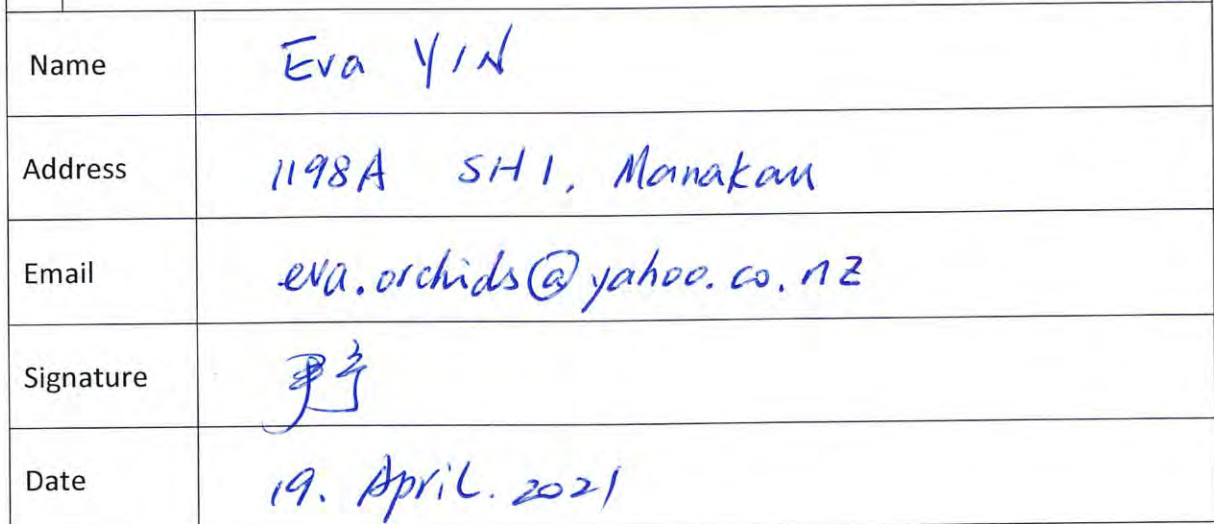 Name Eva YIN
Address 1198A SH1, Manakau
Email eva.orchids@yahoo.co.nz
Signature
Date 19. April. 2021